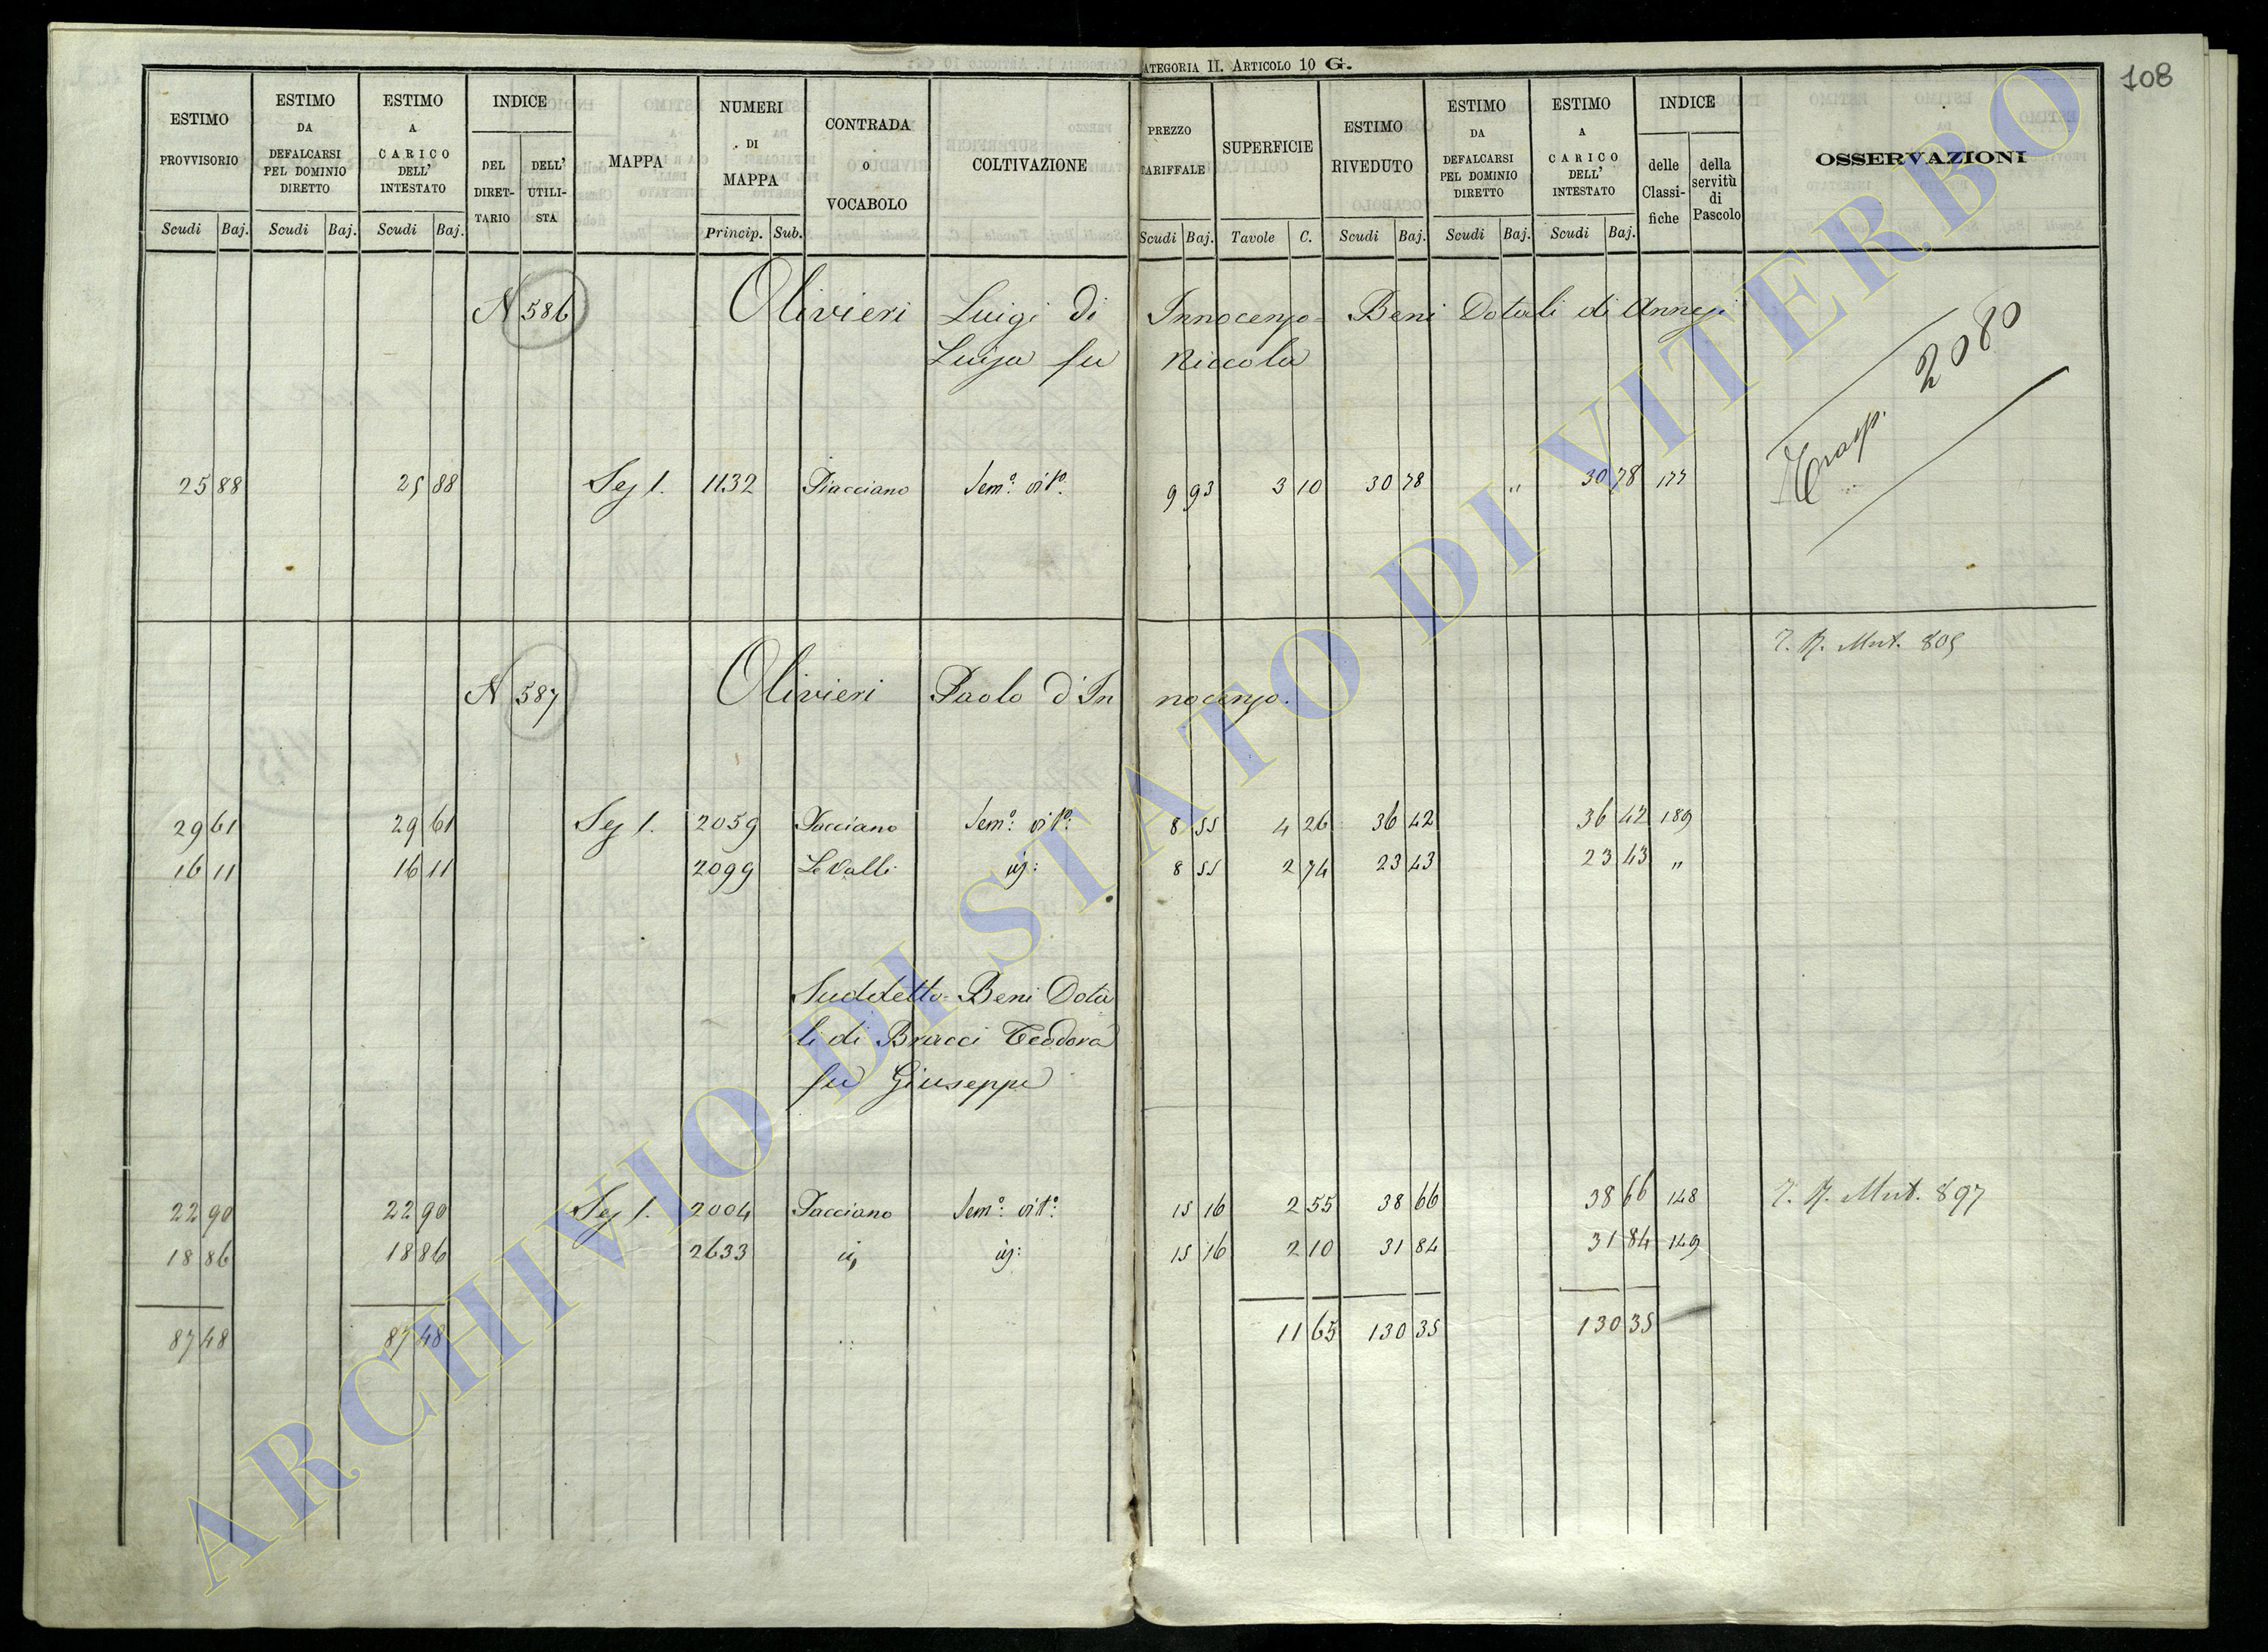 CATEGORIA II. ARTICOLO 10 G.
108
ESTIMO PROVVISORIO Scudi Baj.
ESTIMO DA DEFALCARSI PEL DOMINIO DIRETTO Scudi Baj.
ESTIMO A CARICO DELL' INTESTATO Scudi Baj.
INDICE DEL DIRET-TARIO DELL' UTILI-STA
MAPPA
NUMERI DI MAPPA Princip. Sub.
CONTRADA O VOCABOLO
COLTIVAZIONE
PREZZO TARIFFALE Scudi Baj.
SUPERFICIE Tavole C.
ESTIMO RIVEDUTO Scudi Baj.
ESTIMO DA DEFALCARSI PEL DOMINIO DIRETTO Scudi Baj.
ESTIMO A CARICO DELL' INTESTATO Scudi Baj.
INDICE delle Classi-fiche della servitù di Pascolo
OSSERVAZIONI
N 586 Olivieri Luigi di Innocenzo = Beni Dotali di
Luisa fu Niccola
Trasp. 2080
25 88 25 88 Sez 1. 1132 Piacciano Sem.o vit.o 9 93 3 10 30 78 " 30 78 177
T. P. Mut. 805
N 587 Olivieri Paolo d'In nocenzo.
29 61 29 61 Sez 1. 2059 Pacciano Sem.o vit.o 8 55 4 26 36 42 36 42 189
16 11 16 11 2099 Le Valli 8 55 2 74 23 43 23 43 "
Suddetto = Beni Dota
li di Bracci Teodora
fu Giuseppe
22 90 22 90 Sez 1. 2004 Pacciano Sem.o vit.o 15 16 2 55 38 66 38 66 148 T. P. Mut. 897
18 86 18 86 2633 15 16 2 10 31 84 31 84 149
87 48 87 48 11 65 130 35 130 35
ARCHIVIO DI STATO DI VITERBO